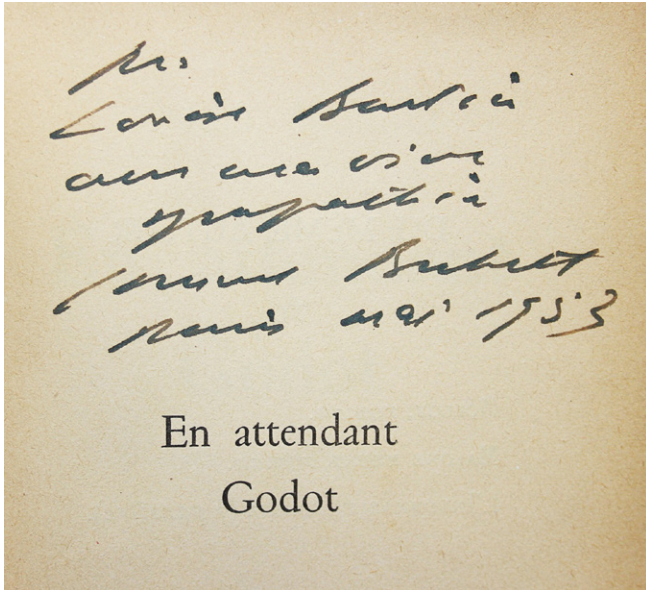 pr.
Louise
avec ma vive
sympathie
Samuel Beckett
Paris mai 1953
En attendant
Godot